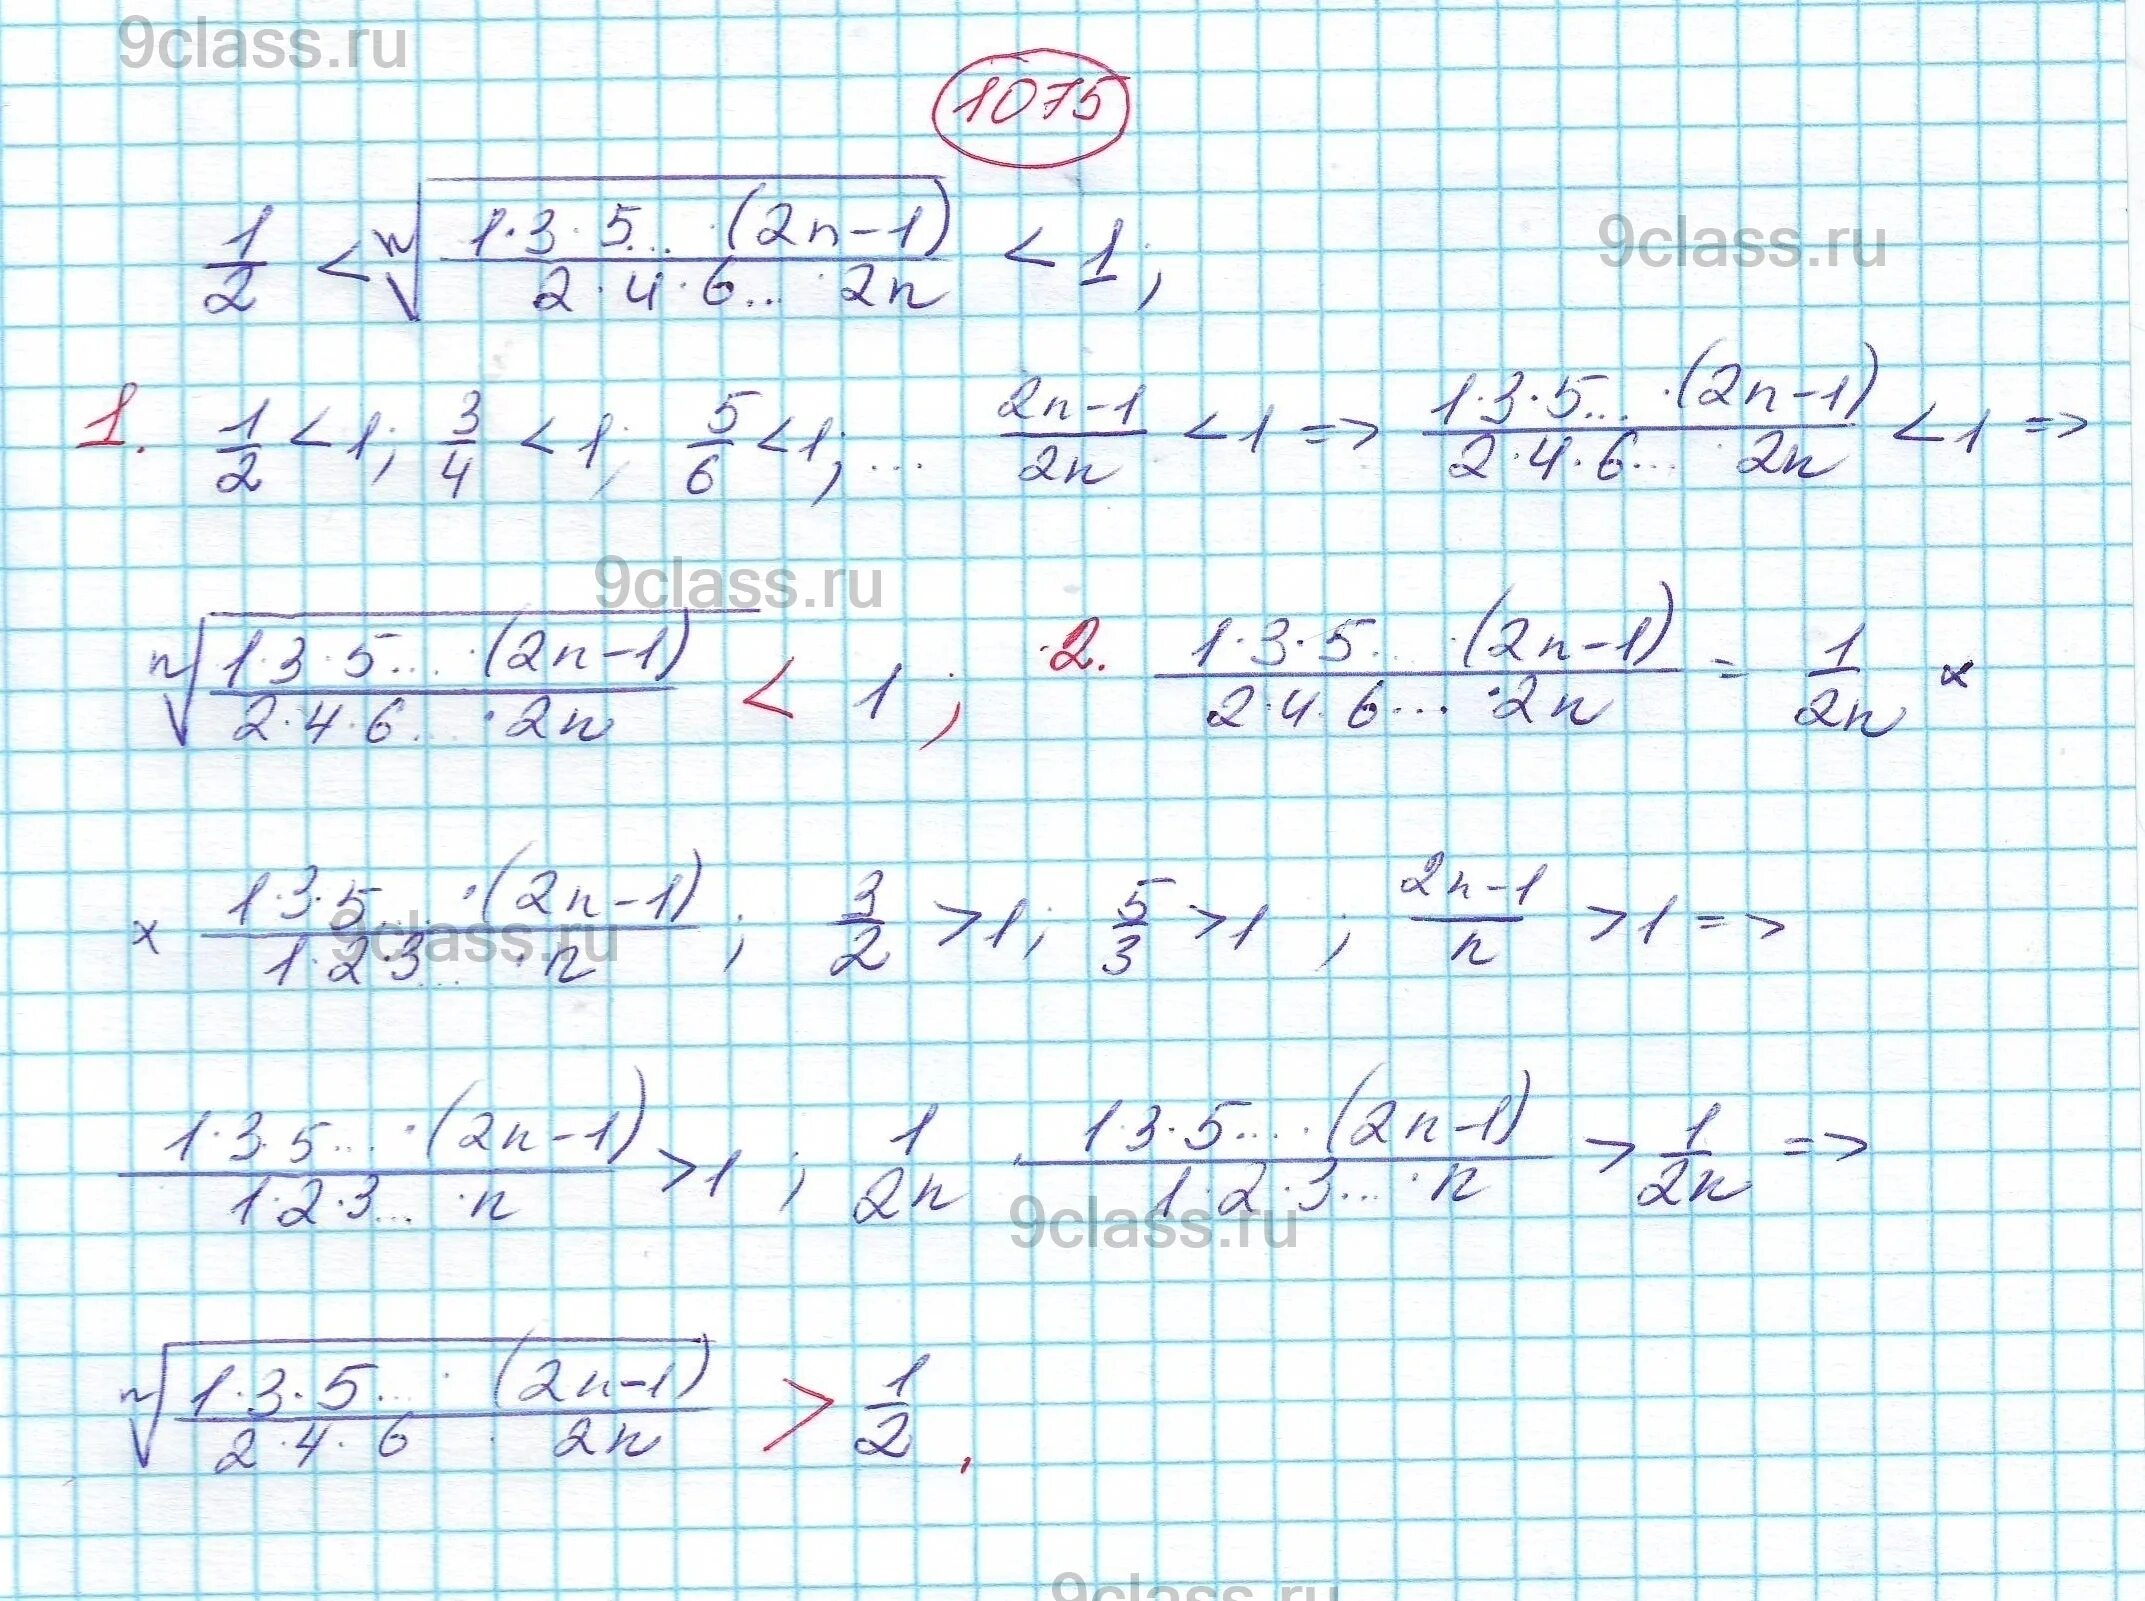 9class.ru
1075
1/2 < ⁿ√(1·3·5...·(2n-1) / 2·4·6...·2n) < 1;
9class.ru
1. 1/2 < 1; 3/4 < 1; 5/6 < 1; ... (2n-1)/2n < 1 => 1·3·5...·(2n-1) / 2·4·6...·2n < 1 =>
9class.ru
ⁿ√(1·3·5...·(2n-1) / 2·4·6...·2n) < 1; 2. 1·3·5...·(2n-1) / 2·4·6...·2n = 1/2n ×
× 1·3·5...·(2n-1) / 1·2·3...·n; 3/2 > 1; 5/3 > 1; (2n-1)/n > 1 =>
9class.ru
1·3·5...·(2n-1) / 1·2·3...·n > 1; 1/2n · 1·3·5...·(2n-1) / 1·2·3...·n > 1/2n =>
9class.ru
ⁿ√(1·3·5...·(2n-1) / 2·4·6·2n) > 1/2.
9class.ru